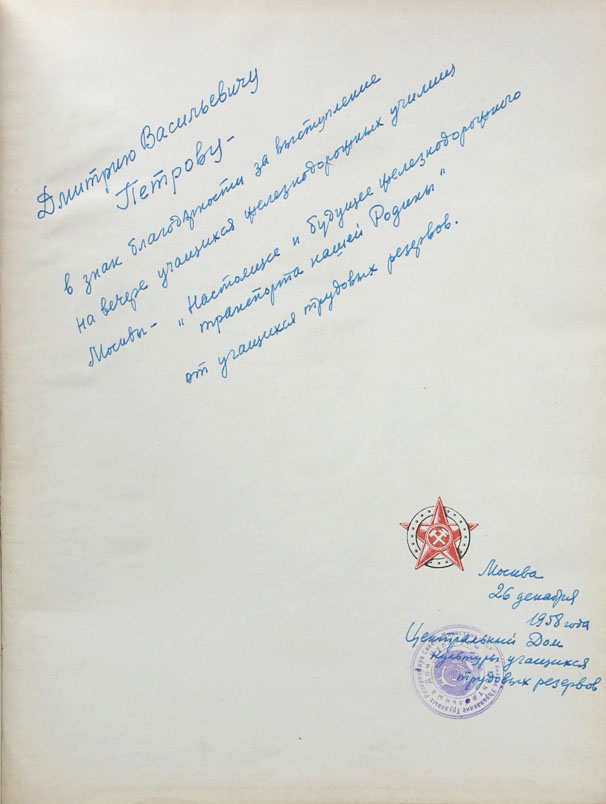 Дмитрию Васильевичу
Петрову-
в знак благодарности за выступление
на вечере учащихся железнодорожных училищ
Москвы- "Настоящее и будущее железнодорожного
транспорта нашей Родины"
от учащихся трудовых резервов.
Москва
26 декабря
1958 года
Центральный Дом
культуры учащихся
трудовых резервов